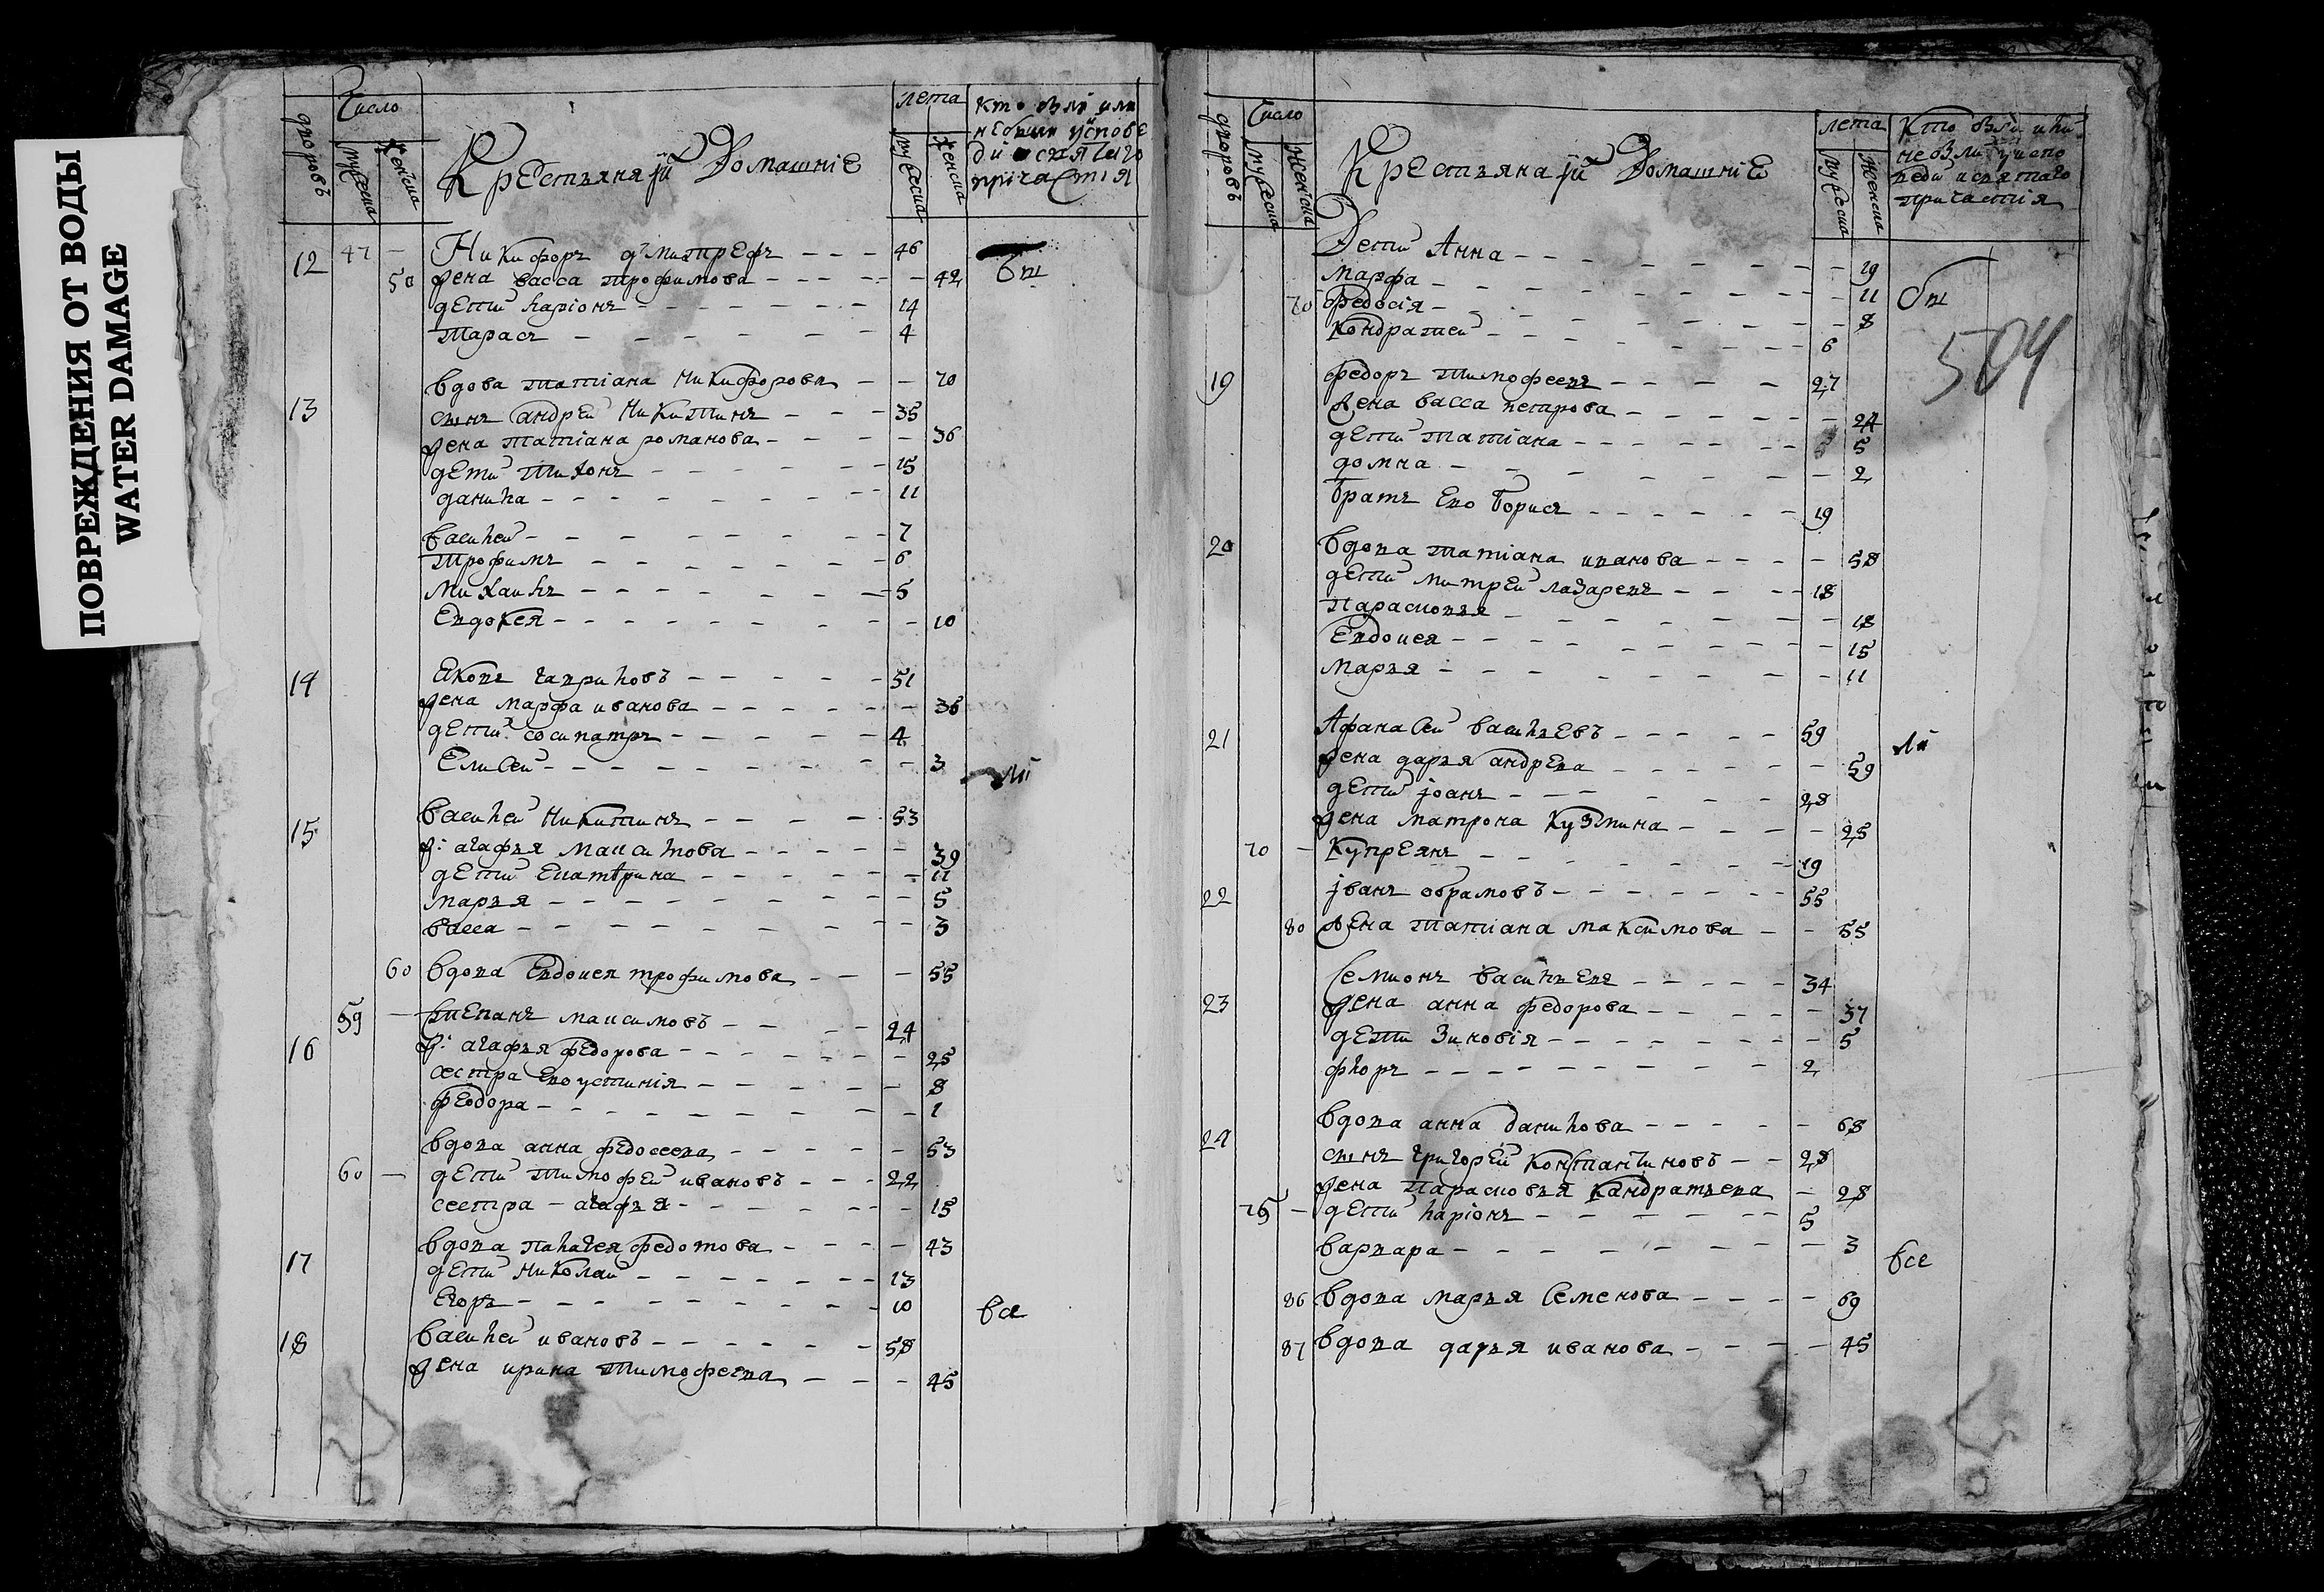 ПОВРЕЖДЕНИЯ ОТ ВОДЫ
WATER DAMAGE
дворовъ
Число
мужеска
женска
Крестьяня їй Домашніе
лета
мужеска
женска
кто был или
не были уіспове
ди и святаго
прічастія
12 47 — Никифоръ дмитрефъ 46
50 жена васса трофимова 42 бы
дети ларіонъ 14
тарасъ 4
вдова татіана никифорова 70
13 сынъ андрей никитинъ 35
жена татіана романова 36
дети тихонъ 15
данила 11
василей 7
трофимъ 6
михаилъ 5
Евдокея 10
14 Яковъ гавриловъ 51
жена марфа иванова 36
дети сосипатръ 4
Елисей 3
ли
15 василей никитинъ 53
ж: агафья максимова 39
дети Екатѣрина 11
марья 5
васса 3
60 вдова Евдокея трофимова 55
59 — степанъ максимовъ 24
16 ж: агафья федорова 25
сестра Ево устинія 8
феодора 1
вдова анна федосеева 53
60 — дети тимофей ивановъ 22
сестра агафья 15
17 вдова палагея федотова 43
дети николай 13
Егоръ 10
все
18 василей ивановъ 58
жена ирина тимофеева 45
дворовъ
Число
мужеска
женска
Крестьяна їй Домашніе
лета
мужеска
женска
Кто были или
не были у испо
веди и святаго
причастія
Дети Анна 19
Марфа 11 бы
70 федосія 8
Кондратей 6
504
19 федоръ тимофеевъ 27
жена васса петрова 24
дети татіана 5
домна 2
братъ Ево борисъ 19
20 вдова татіана иванова 58
дети митрей лазаревъ 18
парасковья 18
Евдокея 15
марья 11
21 Афанасей васильевъ 59
ли
жена дарья андрева 59
дети іоанъ 28
жена матрона кузмина 25
70 — Купреянъ 19
22 іванъ обрамовъ 55
80 жена татиана максимова 55
семионъ васильевъ 34
23 жена анна федорова 37
дети зиновія 5
флоръ 2
вдова анна данилова 68
24 сынъ григорей константиновъ 28
жена парасковья кандратьева 28
75 — дети ларіонъ 5
варвара 3
все
86 вдова марья семенова 69
87 вдова дарья иванова 45